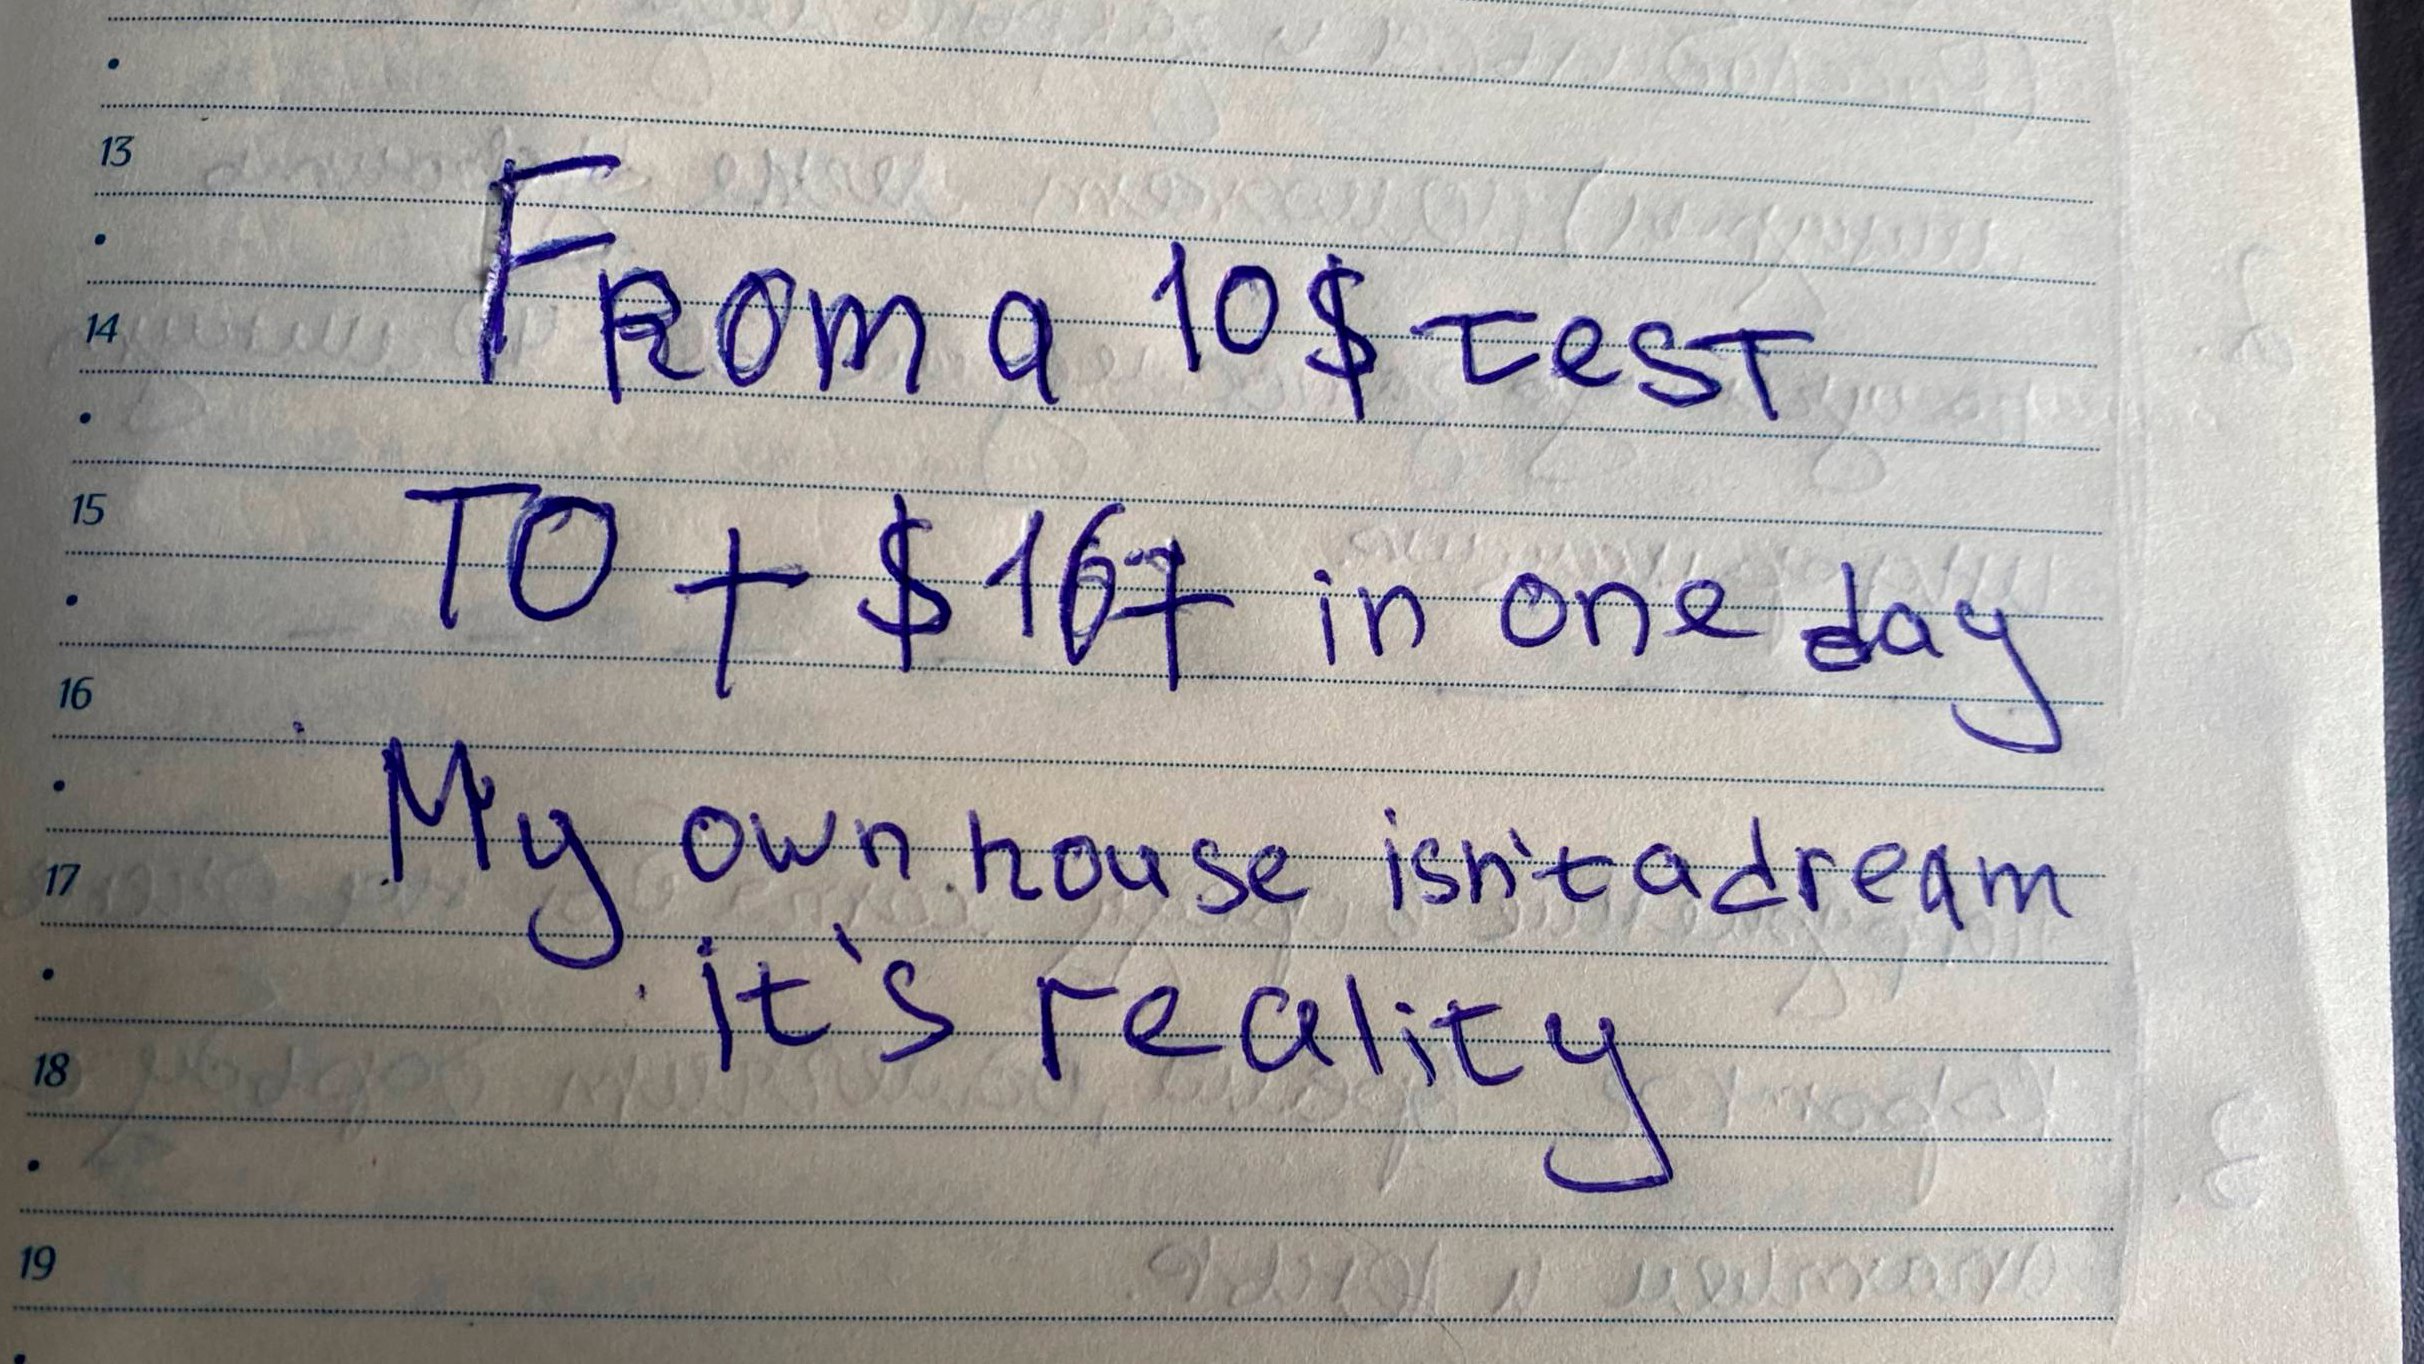 13
From a 10$ test
14
TO + $167 in one day
15
16
My own house isn't a dream
17
it's reality
18
19